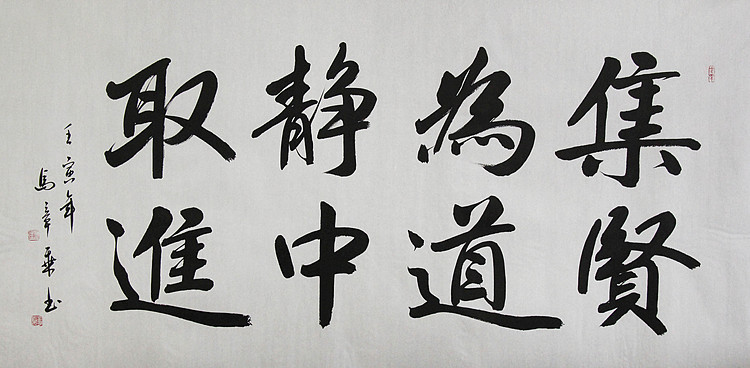 集賢
為道
静中
取進
壬寅年
馬章乘书